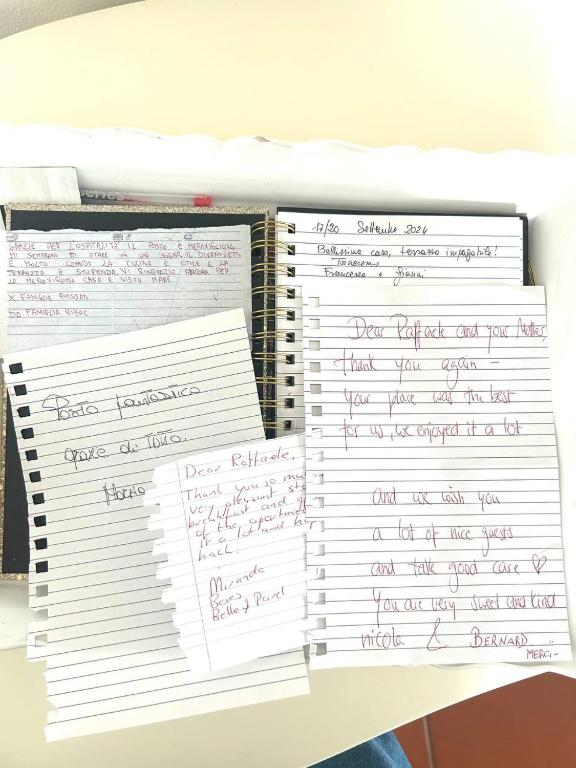 GRAZIE PER L'OSPITALITÀ IL POSTO È MERAVIGLIOSO,
MI SEMBRAVA DI STARE IN UN SOGNO. IL
È MOLTO COMODO LA CUCINA È UTILE E LA
TERRAZZA È STUPENDA. VI RINGRAZIO ANCORA PER
LA MERAVIGLIOSA CASA E VISTA MARE.
X FAMIGLIA FOSSATI
DA FAMIGLIA
17/20 Settembre 2024
Bellissima casa, terrazzo impagabile!
Torneremo
Francesco e Gianni
Posto fantastico
grazie di tutto.
Dear Raffaele,
Thank you so mu
very pleasant sta
breakfast and g
of the apartmen
it a lot and ho
back.
Miranda
Boris
Belle & Pavel
Dear Raffaele and your Mother,
thank you again –
your place was the best
for us, we enjoyed it a lot
and we wish you
a lot of nice guests
and take good care ♡
You are very sweet and kind
nicola & BERNARD
MERCI –